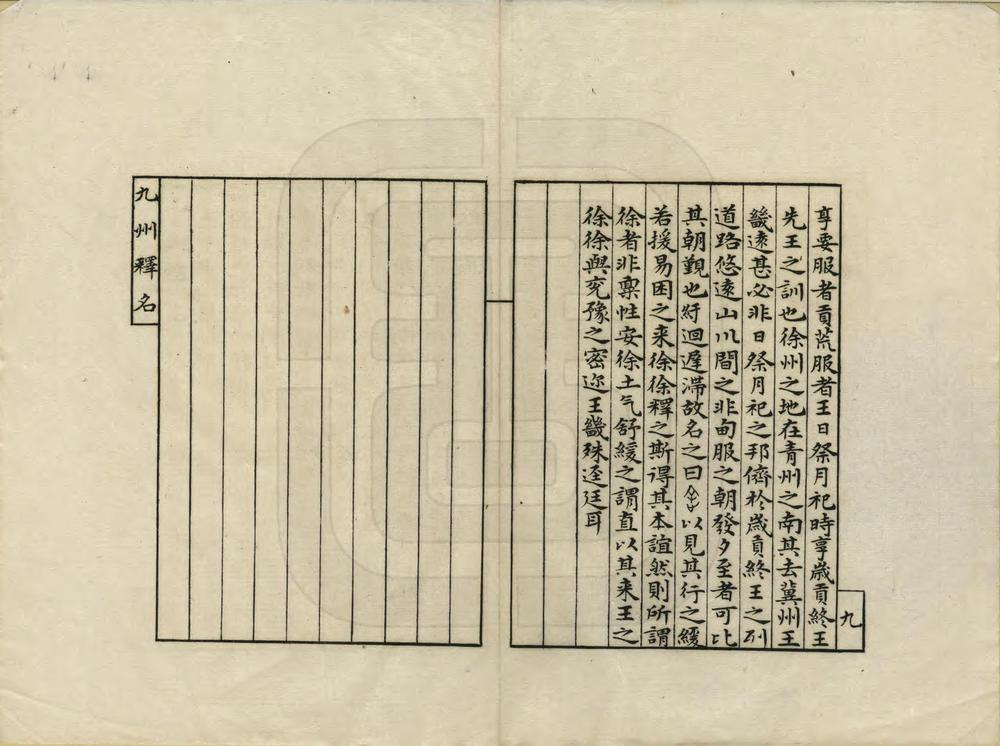 享要服者貢荒服者王日祭月祀時享歲貢終王
先王之訓也徐州之地在青州之南其去冀州王
畿遠甚必非日祭月祀之邦儕於歲貢終王之列
道路悠遠山川間之非甸服之朝發夕至者可比
其朝覲也紆迴遲滯故名之曰以見其行之緩
若援易困之來徐徐釋之斯得其本誼然則所謂
徐者非稟性安徐土气舒緩之謂直以其來王之
徐徐與兖豫之密邇王畿殊逕廷耳
九
九州釋名